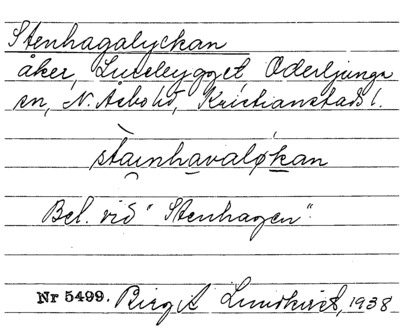 Stenhagalyckan
åker, Luseleygget, Oderljunga
sn, N. Åsbohd, Kristianstads l.
stainhavaløkan
Bel. vid "Stenhagen".
Nr 5499. Birgit Lundkvist, 1938